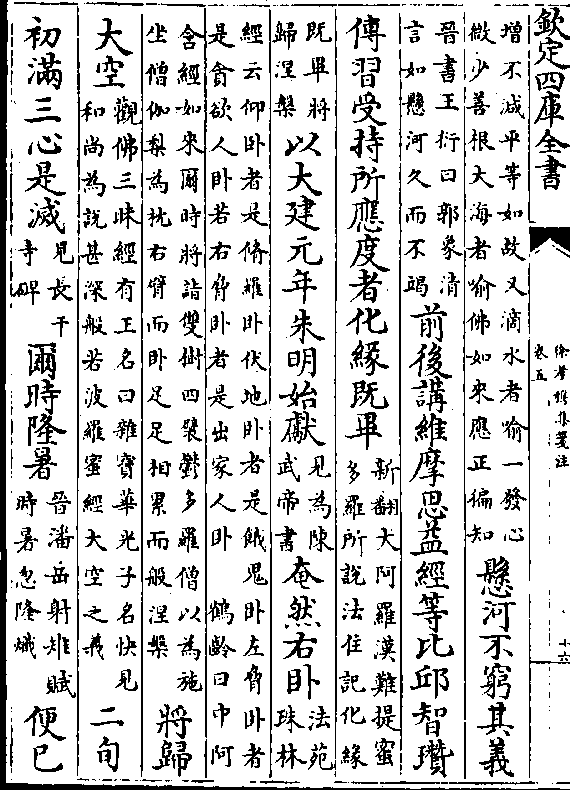 欽定四庫全書
徐孝穆集箋注
卷五
十六
增不減平等如故又滴水者喻一發心
微少善根大海者喻佛如來應正徧知
懸河不窮其義
晉書王衍曰郭象清
言如懸河久而不竭
前後講維摩思益經等比邱智瓚
傳習受持所應度者化緣既畢
新翻大阿羅漢難提蜜
多羅所說法住記化緣
既畢將
歸湼槃
以大建元年朱明始獻
見為陳
武帝書
奄然右卧
法苑
珠林
經云仰卧者是脩羅卧伏地卧者是餓鬼卧左脅卧者
是貪欲人卧若右脅卧者是出家人卧 鶴齡曰中阿
含經如來爾時將詣雙樹四襞鬱多羅僧以為施
坐僧伽梨為枕右臂而卧足足相累而般湼槃
將歸
大空
觀佛三昧經有王名曰雜寶華光子名快見
和尚為說甚深般若波羅蜜經大空之義
二旬
初滿三心是滅
見長干
寺碑
爾時隆暑
晉潘岳射雉賦
時暑忽隆熾
便已